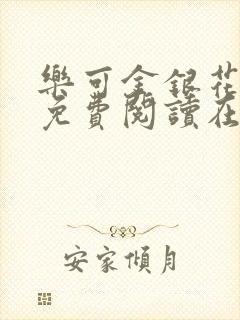 樂可金銀花
免費閱讀在
安家傾月